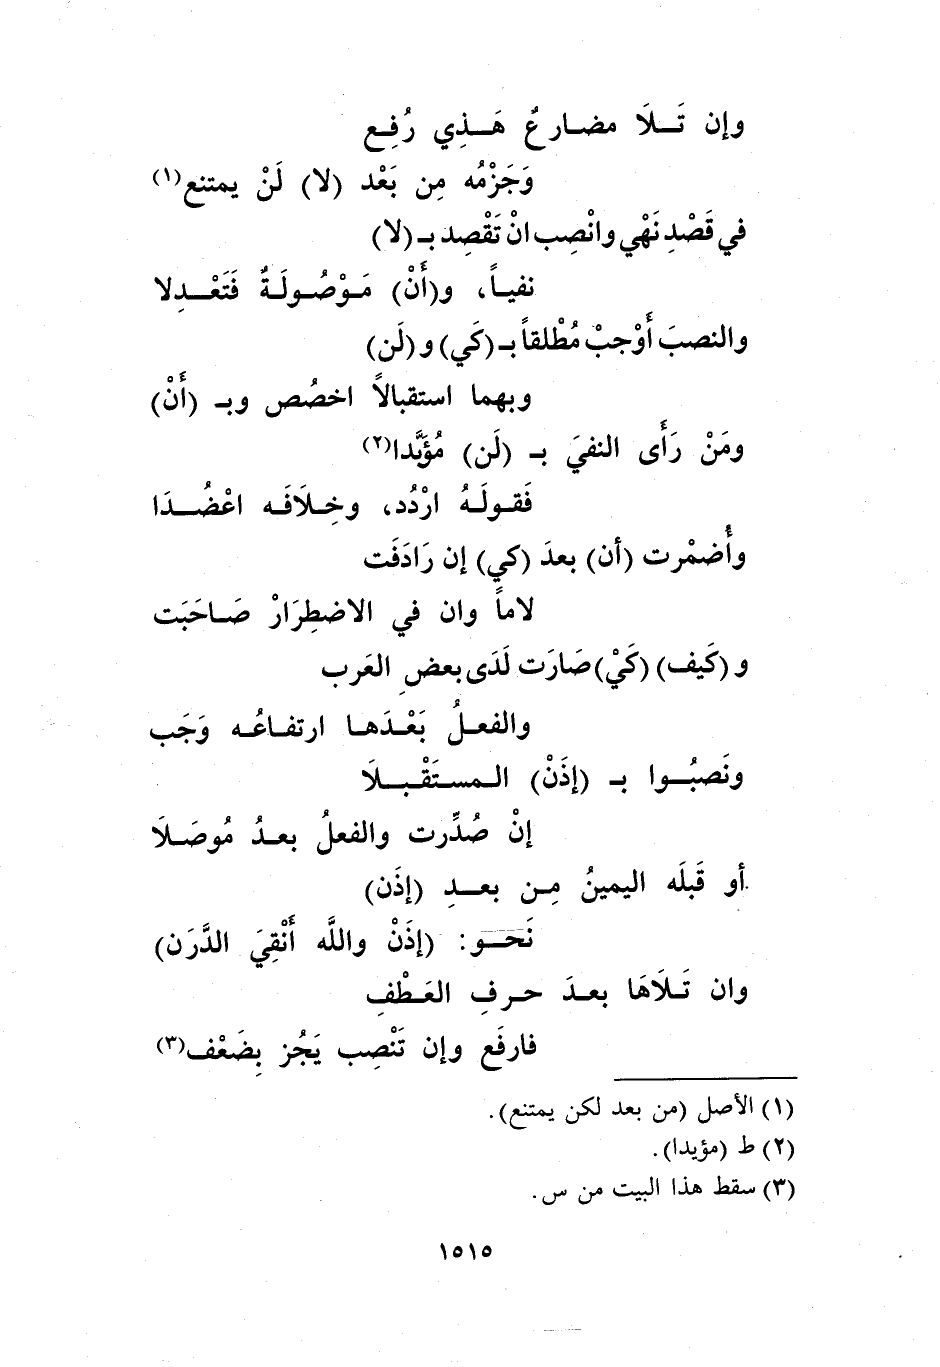 وإن تَـلَا مضارعٌ هَـذِي رُفِع
وَجَزْمُه مِن بَعْد (لا) لَنْ يمتنع(١)
في قَصْدِ نَهْيٍ وانْصِب انْ تَقْصِد بـ (لا)
نفيـاً، و(أَنْ) مَـوْصُـولَـةٌ فَتَعْـدِلا
والنصبَ أَوْجِبْ مُطْلقاً بـ (كَي) و (لَن)
وبهما استقبالاً اخصُص وبـ (أَنْ)
ومَنْ رَأَى النفيَ بـ (لَن) مُؤَبَّدا(٢)
فَقـولَـهُ ارْدُد، وخِـلَافَـه اعْضُـدَا
وأُضمْرت (أن) بعدَ (كي) إن رَادَفَت
لاماً وان في الاضطِرَارْ صَـاحَبَت
و (كَيف) (كَيْ) صَارَت لَدَى بعضِ العَرب
والفعلُ بَعْـدَهـا ارتفـاعُـه وَجَب
ونَصبُـوا بـ (إذَنْ) الـمستَقْـبـلَا
إنْ صُدِّرت والفعلُ بعـدُ مُوصَـلَا
أو قَبلَه اليمينُ مِـن بعـدِ (إذَن)
نَحـو: (إذَنْ واللَّه أَنْقِيَ الدَّرَن)
وان تَـلَاهَا بعـدَ حـرفِ العَـطْفِ
فارفَع وإن تَنْصِب يَجُز بِضَعْف(٣)
(١) الأصل (من بعد لكن يمتنع).
(٢) ط (مؤيدا).
(٣) سقط هذا البيت من س.
١٥١٥